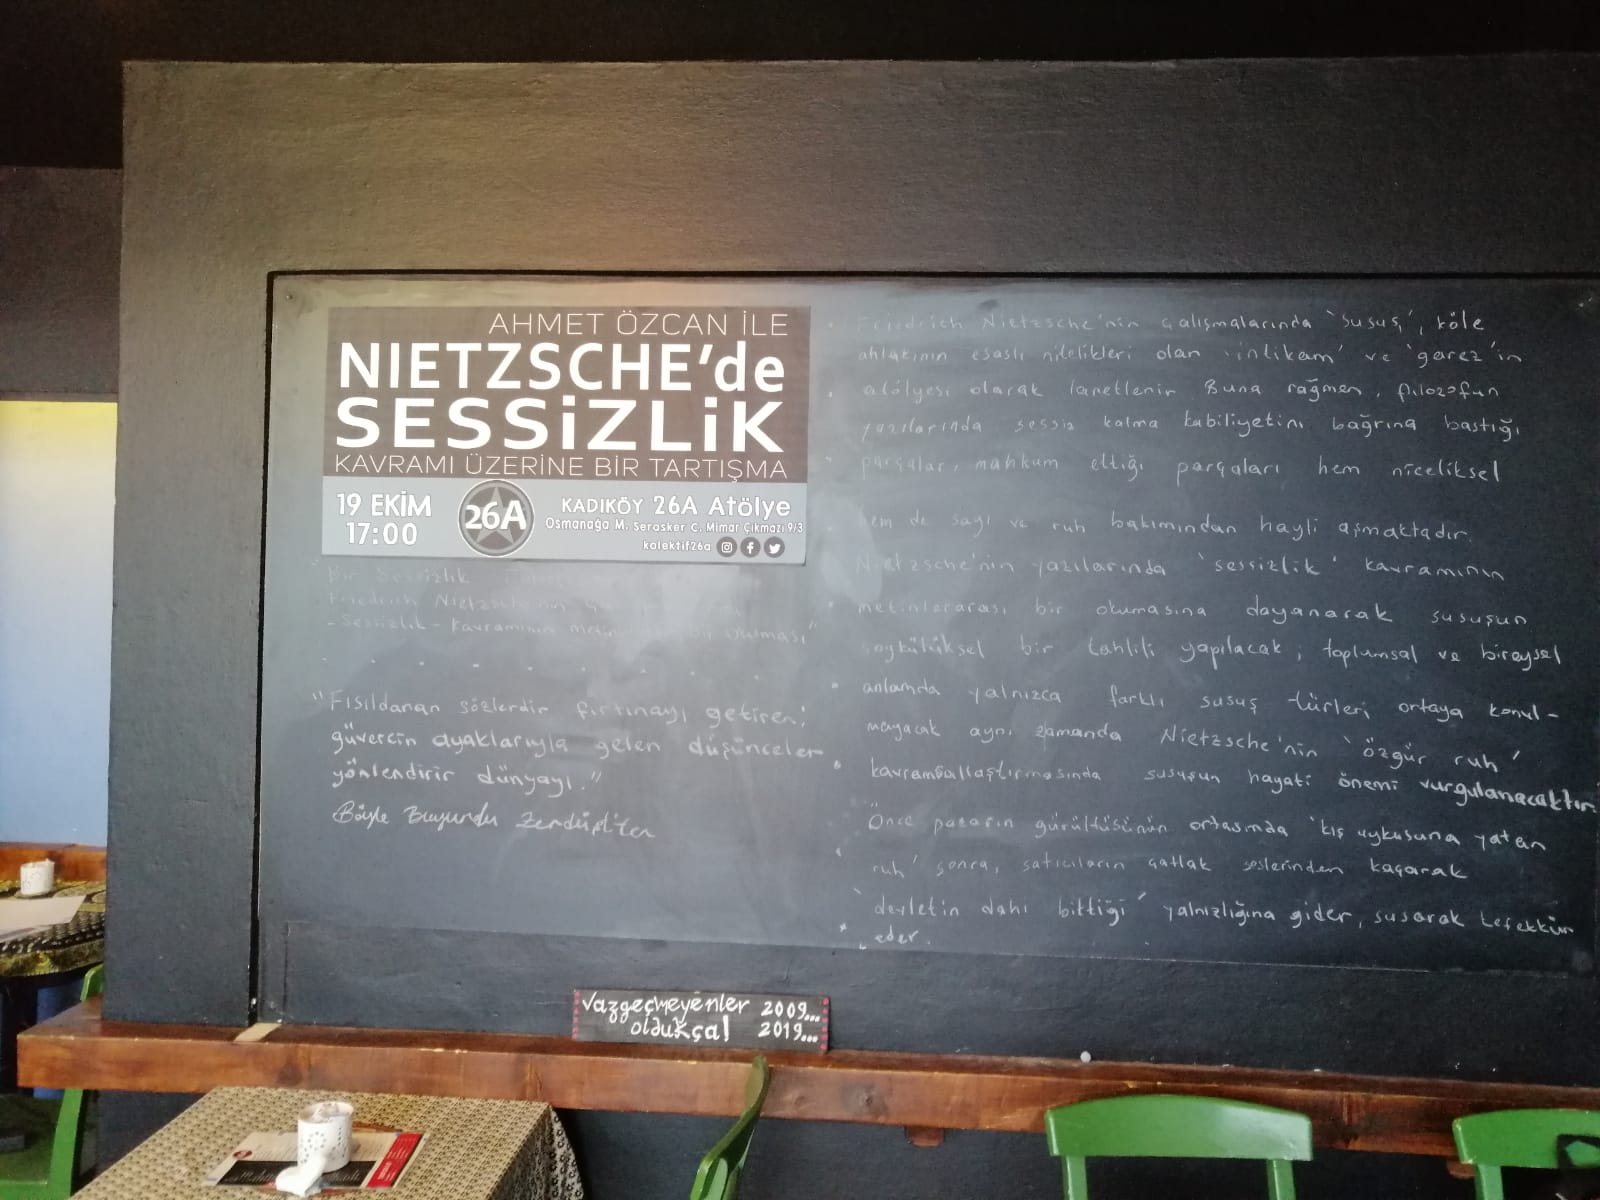 AHMET ÖZCAN İLE
NIETZSCHE'de
SESSİZLİK
KAVRAMI ÜZERİNE BİR TARTIŞMA
19 EKİM
17:00
26A
KADIKÖY 26A Atölye
Osmanağa M. Serasker C. Mimar Çıkmazı 9/3
kolektif26a
"Bir Sessizlik
Friedrich Nietzsche'nin
- Sessizlik - Kavramının bir Okuması"
"Fısıldanan sözlerdir fırtınayı getiren!
güvercin ayaklarıyla gelen düşünceler
yönlendirir dünyayı."
Böyle Buyurdu Zerdüşt'ten
Friedrich Nietzsche'nin çalışmalarında 'susuş', köle
ahlakının esaslı nitelikleri olan 'intikam' ve 'garez'in
atölyesi olarak lanetlenir. Buna rağmen, filozofun
yazılarında sessiz kalma kabiliyetini bağrına bastığı
parçalar, mahkum ettiği parçaları hem niceliksel
hem de sayı ve ruh bakımından hayli aşmaktadır.
Nietzsche'nin yazılarında 'sessizlik' kavramının
metinlerarası bir okumasına dayanarak susuşun
soykütüksel bir tahlili yapılacak, toplumsal ve bireysel
anlamda yalnızca farklı susuş türleri ortaya konul-
mayacak aynı zamanda Nietzsche'nin 'özgür ruh'
kavramsallaştırmasında susuşun hayati önemi vurgulanacaktır.
Önce pazarın gürültüsünün ortasında 'kış uykusuna yatan
ruh' sonra, satıcıların çatlak seslerinden kaçarak
'devletin dahi bittiği' yalnızlığına gider, susarak tefekkür
eder.
Vazgeçmeyenler 2009...
oldukça! 2019...